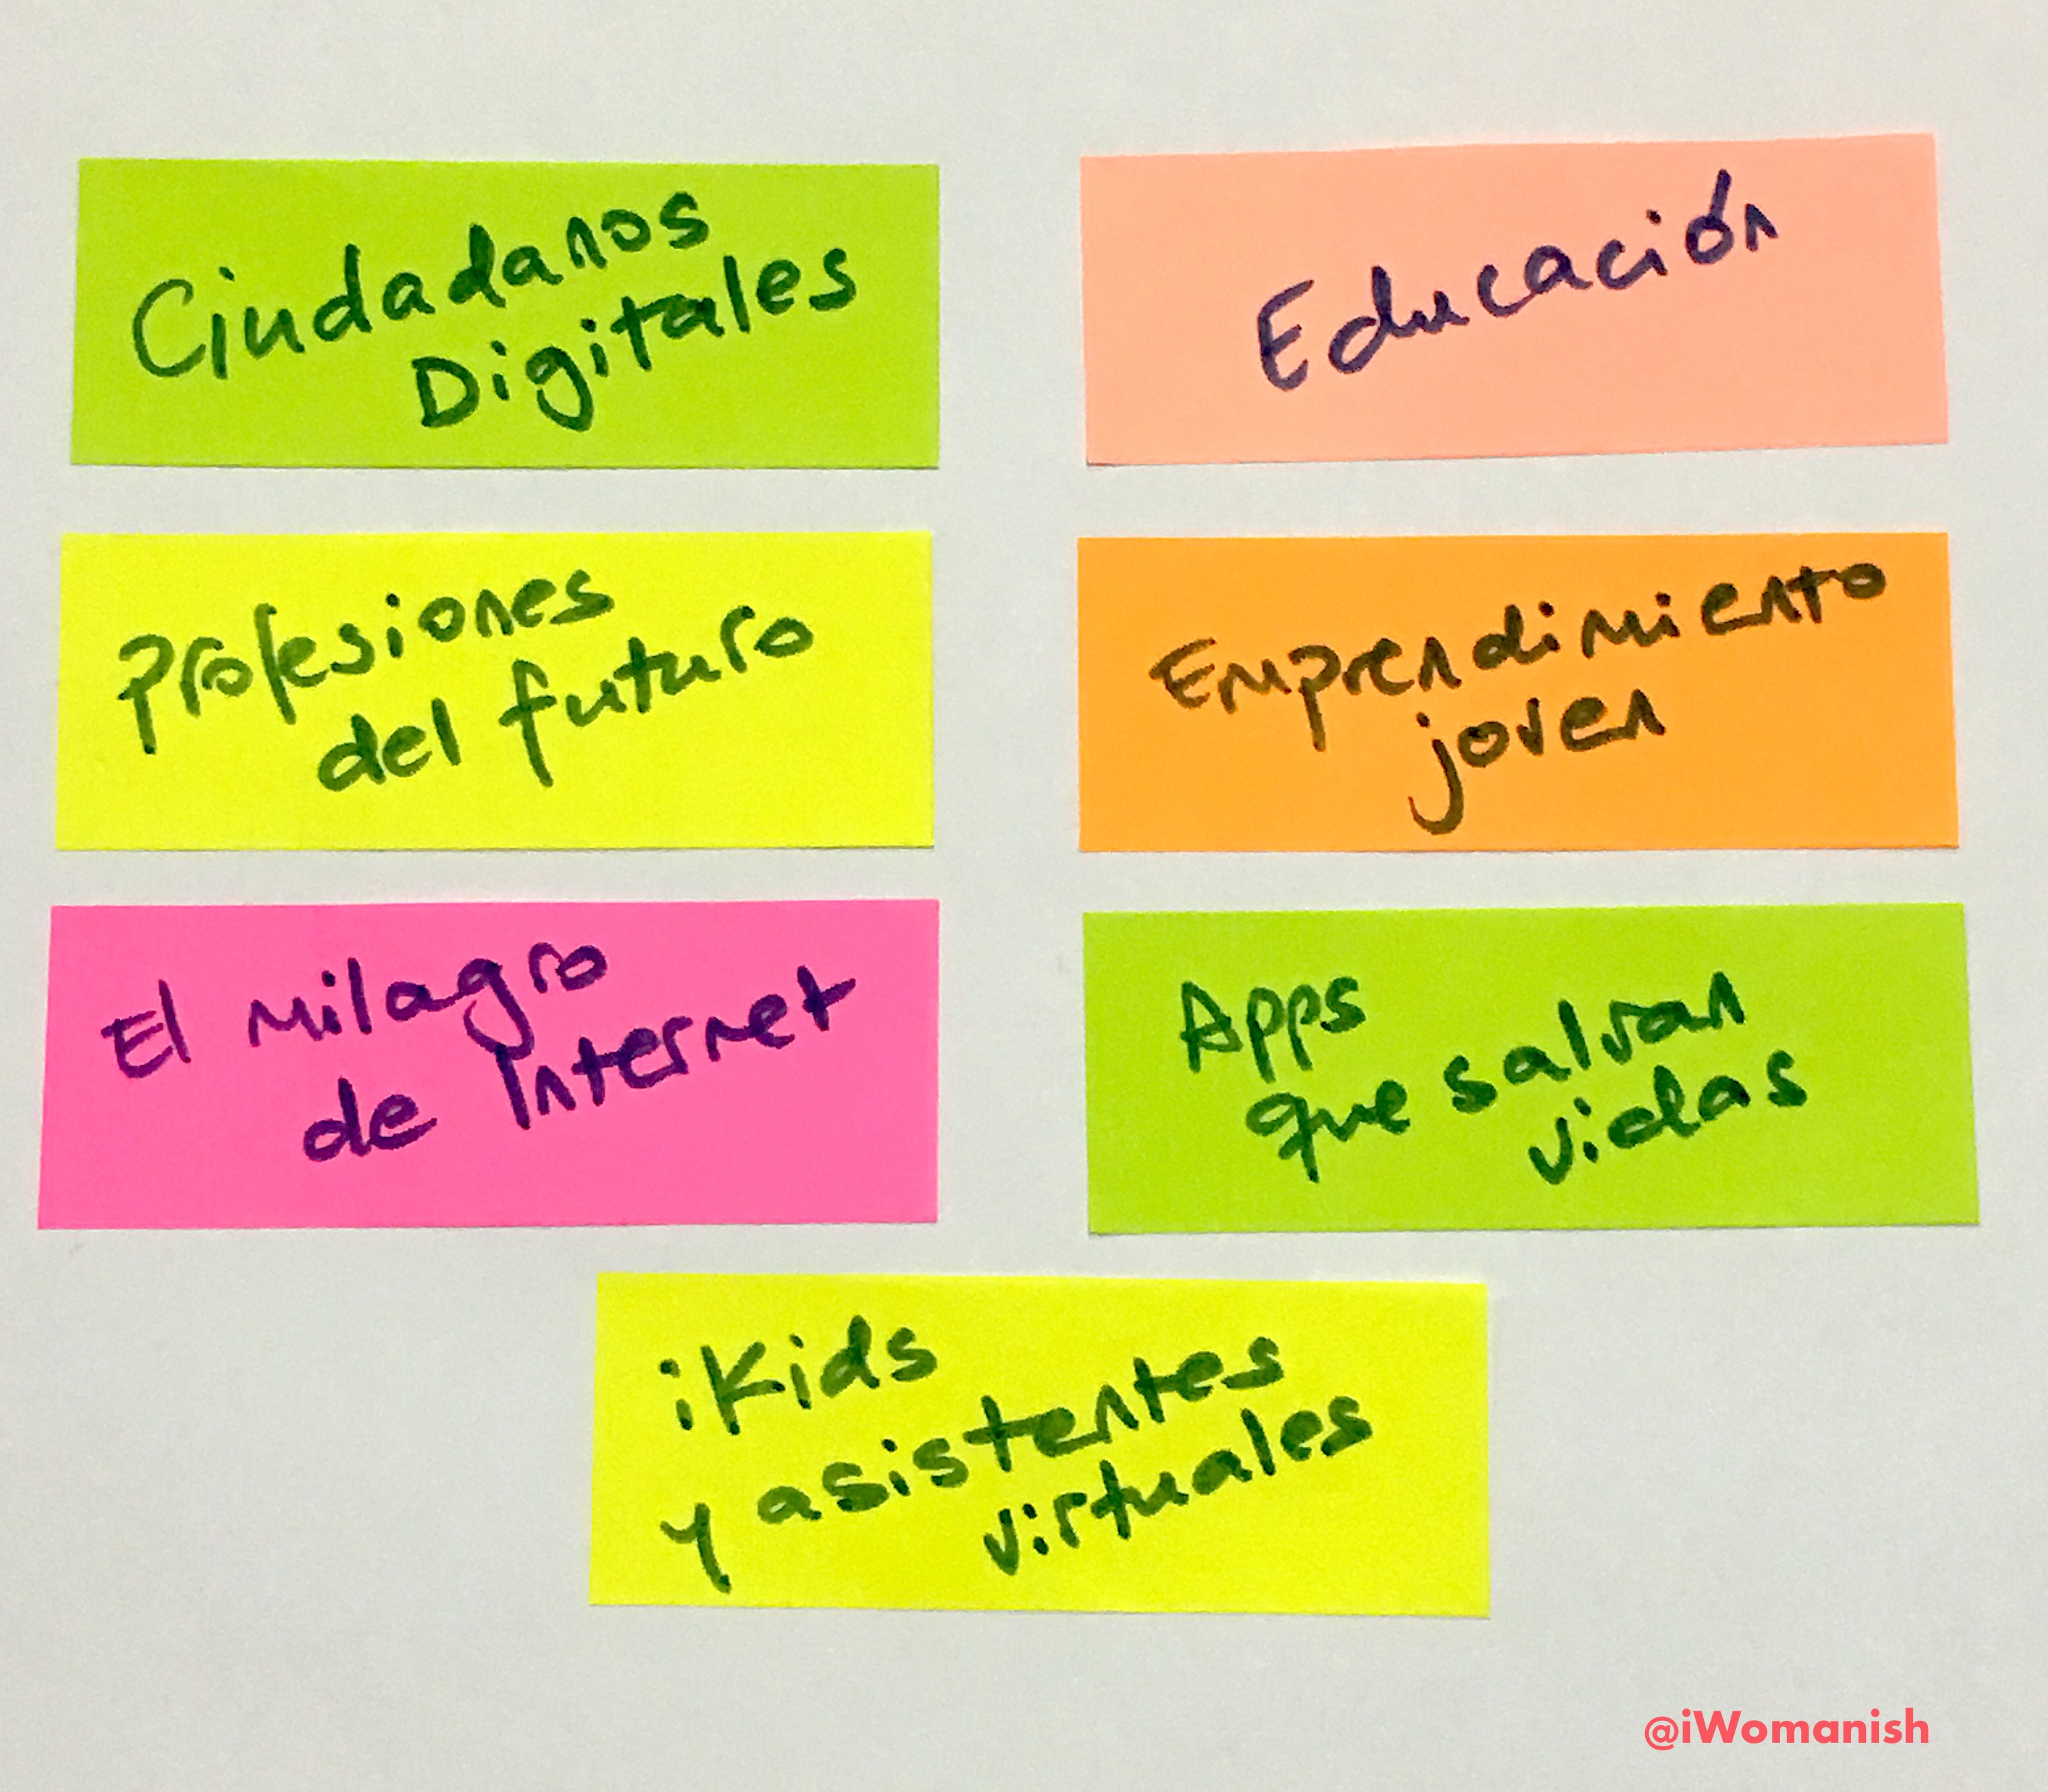 Ciudadanos
Digitales
Educación
Profesiones
del futuro
Emprendimiento
joven
El milagro
de Internet
Apps
que salvan
vidas
iKids
y asistentes
virtuales
@iWomanish